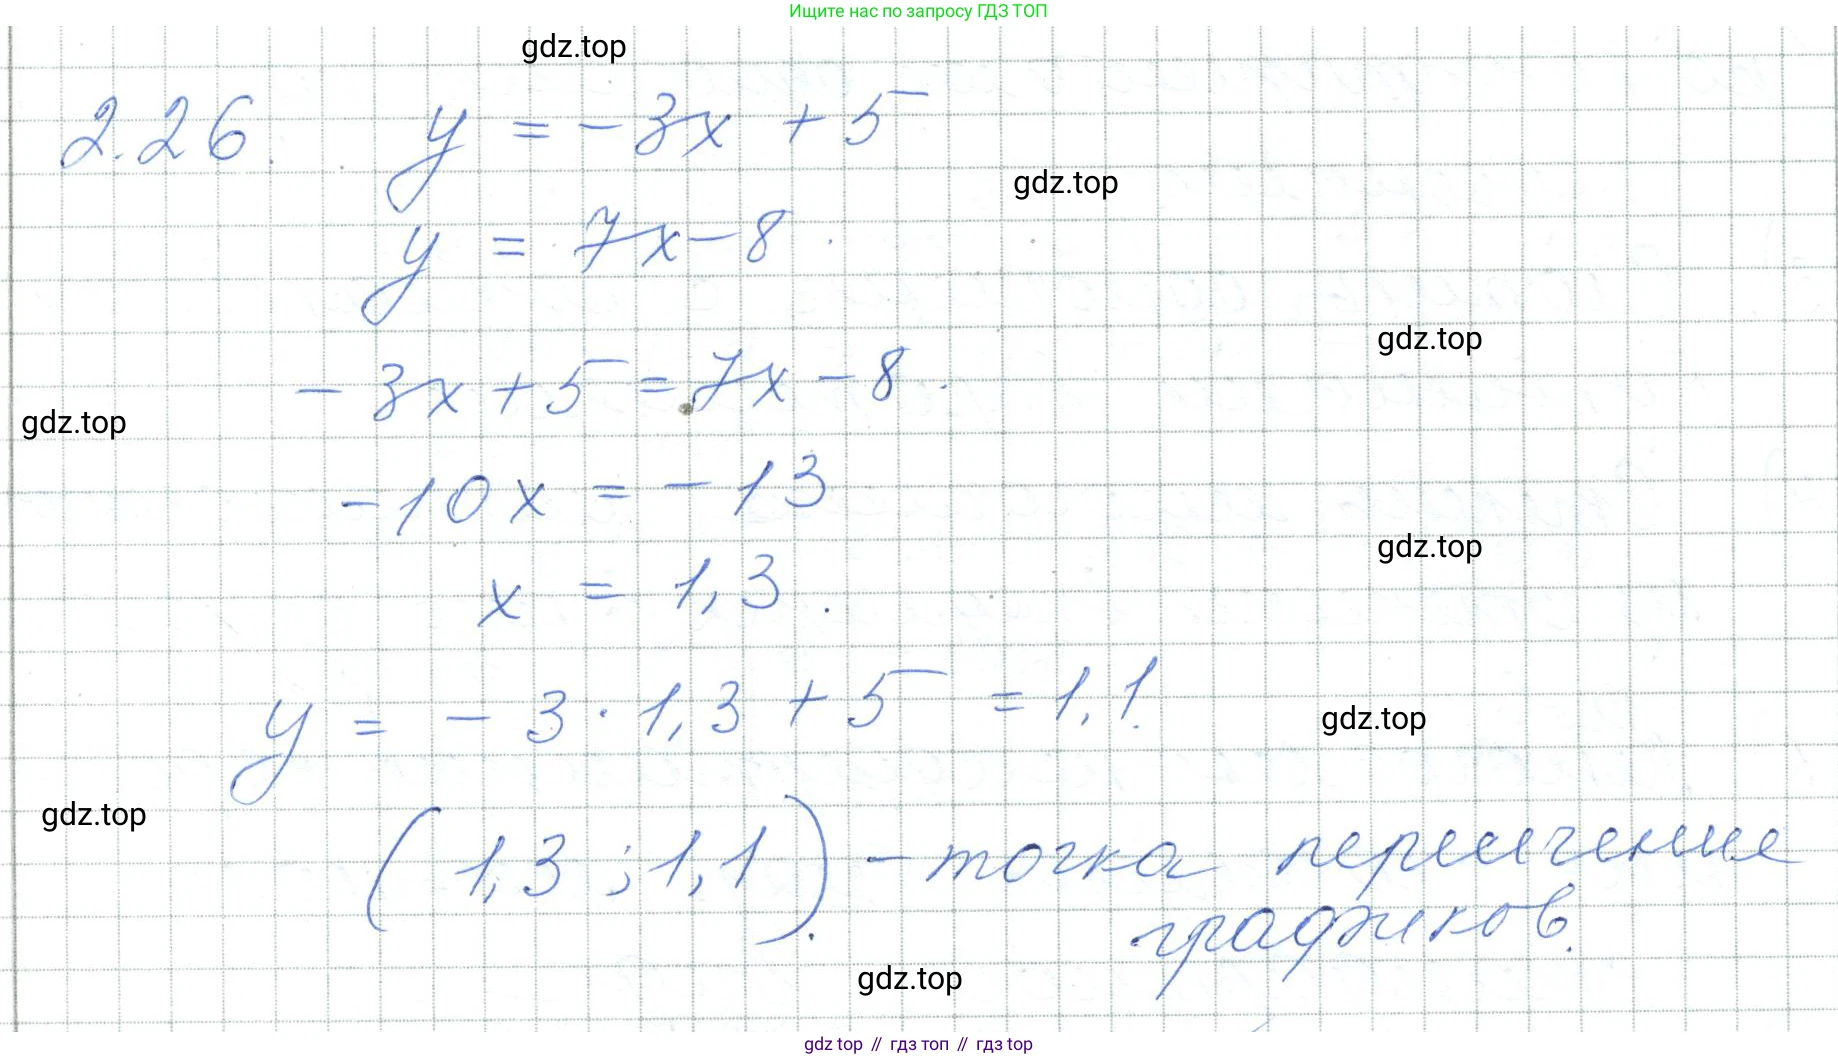 Ищите нас по запросу ГДЗ ТОП
gdz.top
2.26. y = -3x + 5
gdz.top
y = 7x - 8
gdz.top
-3x + 5 = 7x - 8.
gdz.top
-10x = -13
gdz.top
x = 1,3.
y = -3 · 1,3 + 5 = 1,1.
gdz.top
gdz.top
(1,3 ; 1,1) - точка пересечение
графиков.
gdz.top
gdz top // гдз топ // гдз top